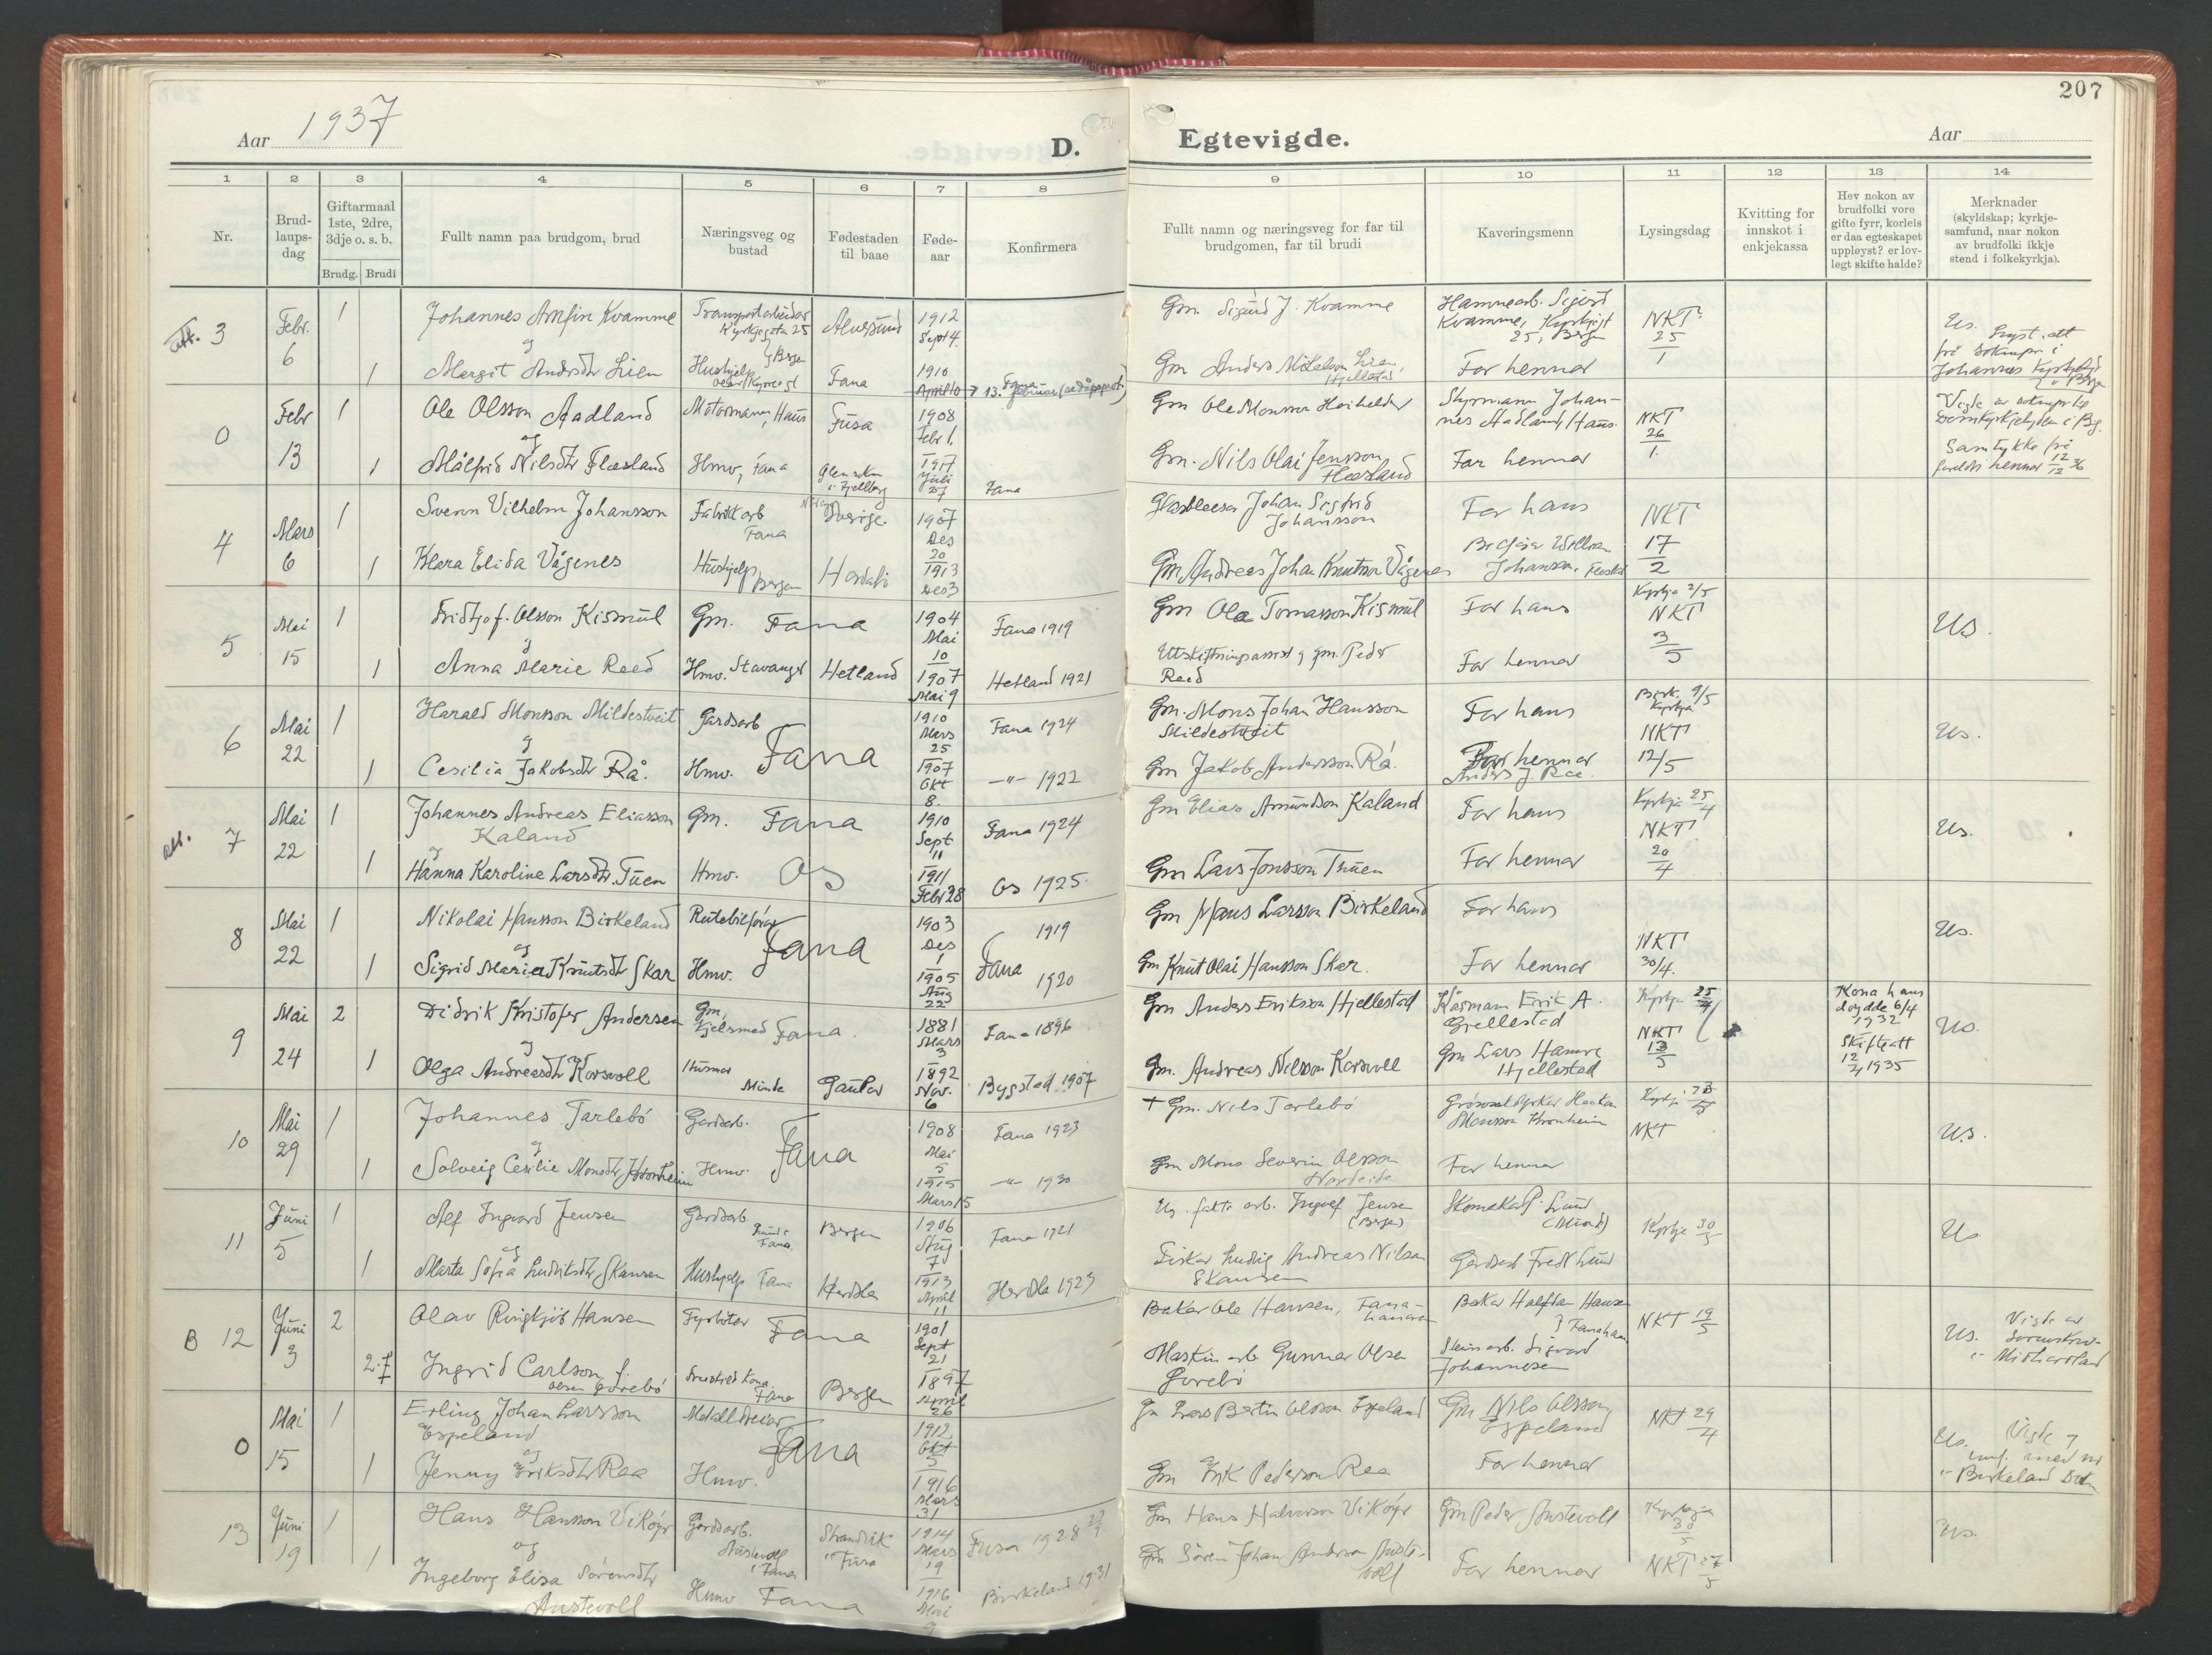 207
Aar 1937
D.
Egtevigde.
Aar
1 2 3 4 5 6 7 8 9 10 11 12 13 14
Nr.
Brud-
laups-
dag
Giftarmaal
1ste, 2dre,
3dje o. s. b.
Brudg. Brudi
Fullt namn paa brudgom, brud
Næringsveg og
bustad
Fødestaden
til baae
Føde-
aar
Konfirmera
Fullt namn og næringsveg for far til
brudgomen, far til brudi
Kaveringsmenn
Lysingsdag
Kvitting for
innskot i
enkjekassa
Hev nokon av
brudfolki vore
gifte fyrr, korleis
er daa egteskapet
uppløyst? er lov-
legt skifte halde?
Merknader
(skyldskap; kyrkje-
samfund, naar nokon
av brudfolki ikkje
stend i folkekyrkja).
Att. 3
Febr.
6
1
Johannes Arnfin Kvamme
Transportarbeidar
Kyrkjegata 25
Bergen
Alversund
1912
Sept 4.
Gm Sigurd J. Kvamme
Hamnearb. Sigurd
Kvamme, Kyrkjegt
25, Bergen
NKT.
25
1
Us.
og
1
Margit Andersdtr Lien
Hushjelp
Fana
1910
April 10
Gm Anders Mikalson Lien,
Hjellestad
Far hennar
0
Febr
13
1
Ole Olsson Aadland
Motormann, Haus
Fusa
1908
Febr 1.
Gm Ole Monsson Hoihelder
Styrmann Johan-
nes Aadland, Haus.
NKT
26
1.
og
1
Målfrid Nilsdtr Flesland
Hmv, Fana
1917
Juli
27
Fana
Gm. Nils Olai Jensson
Flesland
Far hennar
Samtykke frå
foreldri hennar 12/12 36
4
Mars
6
1
Svenn Vilhelm Johansson
Fabrikkarb
Fana
Sverige.
1907
Des
20
Johan Sigfrid
Johansson
Far hans
NKT
17
2
1
Klara Elida Vågenes
Hushjelp
Bergen
1913
Des 3
Gm Andreas Johan Knutson Vågenes
5
Mai
15
1
Fridtjof Olsson Kismul
Gm. Fana
1904
Mai
10
Fana 1919
Gm Ole Tomasson Kismul
Far hans
Kyrkja 2/5
NKT
3
5
Us.
og
1
Anna Marie Reed
Hmv. Stavanger
Hetland
1907
Mai 9
Hetland 1921
Utskiftningsassist og gm. Peder
Reed
Far hennar
6
Mai
22
1
Harald Monsson Mildestveit
Gardsarb
Fana
1910
Mars
25
Fana 1924
Gm. Mons Johan Hansson
Mildestveit
Far hans
Birk. 9/5
Kyrkja
NKT
12/5
Us.
og
1
Cesilia Jakobsdtr Rå.
Hmv.
1907
Okt
8.
—"— 1922
Gm Jakob Andersson Rå.
Far hennar
Anders J. Raa
7
Mai
22
1
Johannes Andreas Eliasson
Kaland
Gm. Fana
1910
Sept
11
Fana 1924
Gm Elias Amundson Kaland
Far hans
Kyrkja 25/4
NKT
20
4
Us.
og
1
Hanna Karoline Larsdtr. Tuen
Hmv. Os
1911
Febr 28
Os 1925.
Gm Lars Jonsson Tuen
Far hennar
8
Mai
22
1
Nikolai Hansson Birkeland
Rutebilførar
Fana
1903
Des
1
Fana
1919
Gm Hans Larsson Birkeland
Far hans
NKT
30/4.
Us.
og
1
Sigrid Maria Knutsdtr Skar
Hmv.
1905
Aug
22
1920
Gm Knut Olai Hansson Skar.
Far hennar
9
Mai
24
2
Didrik Kristofer Andersen
Gm,
Kjelsmed Fana.
1881
Mars
3
Fana 1896
Gm Anders Erikson Hjellestad
Kårmann Erik A.
Gjellestad
Kyrkja 25/4
NKT
13
5
Kona hans
døydde 6/4
1932
Skifteatt
12/4 1935
Us.
og
1
Olga Andreasdtr Korsvoll
Husmor
Minde
Gaular
1892
Nov.
6
Bygstad 1907
Gm. Andreas Nilsson Korsvoll
Gm Lars Hamre
Hjellestad
10
Mai
29
1
Johannes Tarlebø
Gardsarb.
Fana
1908
Mai
5
Fana 1923
† Gm. Nils Tarlebø
NKT
Us.
og
1
Solveig Cesilie Monsdtr
Hmv.
1915
Mars 15
—"— 1930
Gm Mons Severin Olsson
Far hennar
11
Juni
5
1
Alf Ingvard Jensen
Gardsarb
Fana
Bergen
1906
Aug
7
Fana 1921
arb. Ingolf Jensen
(Bergen)
Skomaker Lund
Kyrkja 30/5
Us
og
1
Marta Sofia Ludviksdtr Skansen
Hushjelp Fana
Herdla
1913
April
11
Herdla 1923
Fiskar Ludvig Andreas Nilsen
Skansen
Gardsarb Fredr Lund
B 12
Juni
3
2
Olav Ringkjøb Hansen
Fyrbøter
Fana
1901
Sept
21
Baker Ole Hansen, Fana-
hamren
Baker Halfdan Hansen
NKT 19/5
Us.
2. f
Ingrid Carlson f.
Olsen Gorebø
Fana
Bergen
1897
April
26
Maskinarb Gunnar Olsen
Gorebø
Steinarb. Sigvard
Johannesen
0
Mai
15
1
Erling Johan Larsson
Espeland
Metalldreiar
Fana
1912
Okt
5
Gm Lars Bertin Olsson Espeland
Gm Nils Olsson
Espeland
NKT 29/4
Us.
og
1
Jenny Eriksdtr Raa
Hmv.
1916
Mars
31
Gm Erik Pederson Raa
Far hennar
13
Juni
19
1
Hans Hansson Vikøyr
Gardsarb.
Austevoll
i Fana
Strandvik
i Fusa
1914
Mars
19
Fusa 1928
Gm Hans Halvorson Vikøyr
Gm Peder Austevoll
Kyrkja
30
5
Us.
og
1
Ingeborg Elisa Sørensdtr
Austevoll
Hmv Fana
1916
Mai
9
Birkeland 1931
Gm Søren Johan Anderson Auste-
voll
Far hennar
NKT 27/5